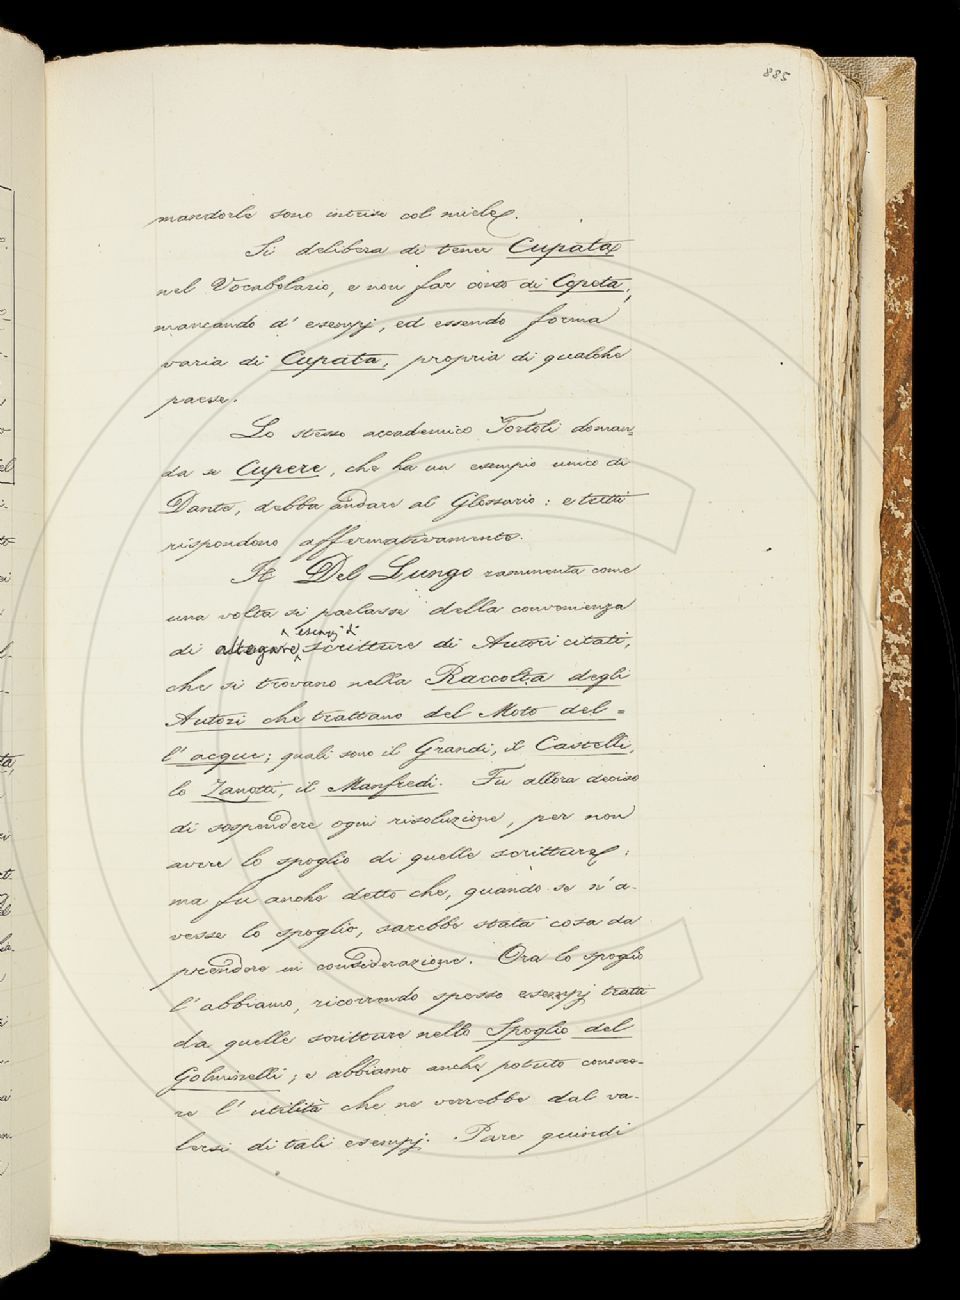 885
mandorle sono intrise col miele.
Si delibera di tener Cupata
nel Vocabolario, e non far conto di Copeta,
mancando d' esempj, ed essendo forma
varia di Cupata, propria di qualche
paese.
Lo stesso accademico Tortoli doman=
da se Cupere, che ha un esempio unico di
Dante, debba andare al Glossario: e tutti
rispondono affermativamente.
Il Del Lungo rammenta come
una volta si parlasse della convenienza
esempj di
di allegare scritture di Autori citati,
che si trovano nella Raccolta degli
Autori che trattano del Moto del=
l' acque; quali sono il Grandi, il Castelli,
lo Zanotti, il Manfredi. Fu allora deciso
di sospendere ogni risoluzione, per non
avere lo spoglio di quelle scritture;
ma fu anche detto che, quando se n' a-
vesse lo spoglio, sarebbe stata cosa da
prendere in considerazione. Ora lo spoglio
l' abbiamo, ricorrendo spesso esempj tratti
da quelle scritture nello Spoglio del
Golminelli; e abbiamo anche potuto conosce-
re l' utilità che ne verrebbe dal va-
lersi di tali esempj. Pare quindi